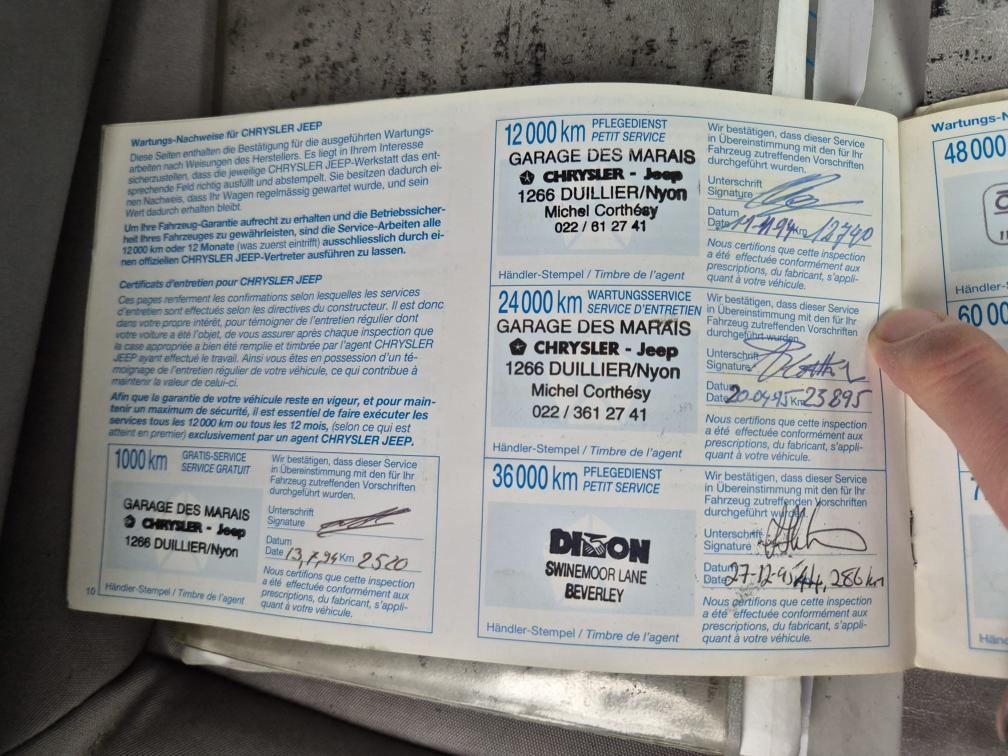 Wartungs-Nachweise für CHRYSLER JEEP
Diese Seiten enthalten die Bestätigung für die ausgeführten Wartungs-
arbeiten nach Weisungen des Herstellers. Es liegt in Ihrem Interesse
sicherzustellen, dass die jeweilige CHRYSLER JEEP-Werkstatt das ent-
sprechende Feld richtig ausfüllt und abstempelt. Sie besitzen dadurch ei-
nen Nachweis, dass Ihr Wagen regelmässig gewartet wurde, und sein
Wert dadurch erhalten bleibt.
Um Ihre Fahrzeug-Garantie aufrecht zu erhalten und die Betriebssicher-
heit Ihres Fahrzeuges zu gewährleisten, sind die Service-Arbeiten alle
12 000 km oder 12 Monate (was zuerst eintrifft) ausschliesslich durch ei-
nen offiziellen CHRYSLER JEEP-Vertreter ausführen zu lassen.
Certificats d'entretien pour CHRYSLER JEEP
Ces pages renferment les confirmations selon lesquelles les services
d'entretien sont effectués selon les directives du constructeur. Il est donc
dans votre propre intérêt, pour témoigner de l'entretien régulier dont
votre voiture a été l'objet, de vous assurer après chaque inspection que
la case appropriée a bien été remplie et timbrée par l'agent CHRYSLER
JEEP ayant effectué le travail. Ainsi vous êtes en possession d'un té-
moignage de l'entretien régulier de votre véhicule, ce qui contribue à
maintenir la valeur de celui-ci.
Afin que la garantie de votre véhicule reste en vigueur, et pour main-
tenir un maximum de sécurité, il est essentiel de faire exécuter les
services tous les 12 000 km ou tous les 12 mois, (selon ce qui est
atteint en premier) exclusivement par un agent CHRYSLER JEEP.
1000 km GRATIS-SERVICE
SERVICE GRATUIT
GARAGE DES MARAIS
CHRYSLER - Jeep
1266 DUILLIER/Nyon
Händler-Stempel / Timbre de l'agent
Wir bestätigen, dass dieser Service
in Übereinstimmung mit den für Ihr
Fahrzeug zutreffenden Vorschriften
durchgeführt wurden.
Unterschrift
Signature
Datum
Date 13,7,94 Km 2520
Nous certifions que cette inspection
a été effectuée conformément aux
prescriptions, du fabricant, s'appli-
quant à votre véhicule.
10
12 000 km PFLEGEDIENST
PETIT SERVICE
GARAGE DES MARAIS
CHRYSLER - Jeep
1266 DUILLIER/Nyon
Michel Corthésy
022 / 61 27 41
Händler-Stempel / Timbre de l'agent
Wir bestätigen, dass dieser Service
in Übereinstimmung mit den für Ihr
Fahrzeug zutreffenden Vorschriften
durchgeführt wurden.
Unterschrift
Signature
Datum
Date 11-11-94 Km 12740
Nous certifions que cette inspection
a été effectuée conformément aux
prescriptions, du fabricant, s'appli-
quant à votre véhicule.
24 000 km WARTUNGSSERVICE
SERVICE D'ENTRETIEN
GARAGE DES MARAIS
CHRYSLER - Jeep
1266 DUILLIER/Nyon
Michel Corthésy
022 / 361 27 41
Händler-Stempel / Timbre de l'agent
Wir bestätigen, dass dieser Service
in Übereinstimmung mit den für Ihr
Fahrzeug zutreffenden Vorschriften
durchgeführt wurden.
Unterschrift
Signature
Datum
Date 20-04-95 Km 23895
Nous certifions que cette inspection
a été effectuée conformément aux
prescriptions, du fabricant, s'appli-
quant à votre véhicule.
36 000 km PFLEGEDIENST
PETIT SERVICE
DIXON
SWINEMOOR LANE
BEVERLEY
Händler-Stempel / Timbre de l'agent
Wir bestätigen, dass dieser Service
in Übereinstimmung mit den für Ihr
Fahrzeug zutreffenden Vorschriften
durchgeführt wurden.
Unterschrift
Signature
Datum
Date 27-12-95 44,286 km
Nous certifions que cette inspection
a été effectuée conformément aux
prescriptions, du fabricant, s'appli-
quant à votre véhicule.
Wartungs-N
48 000
Händler-S
60 00
Händ